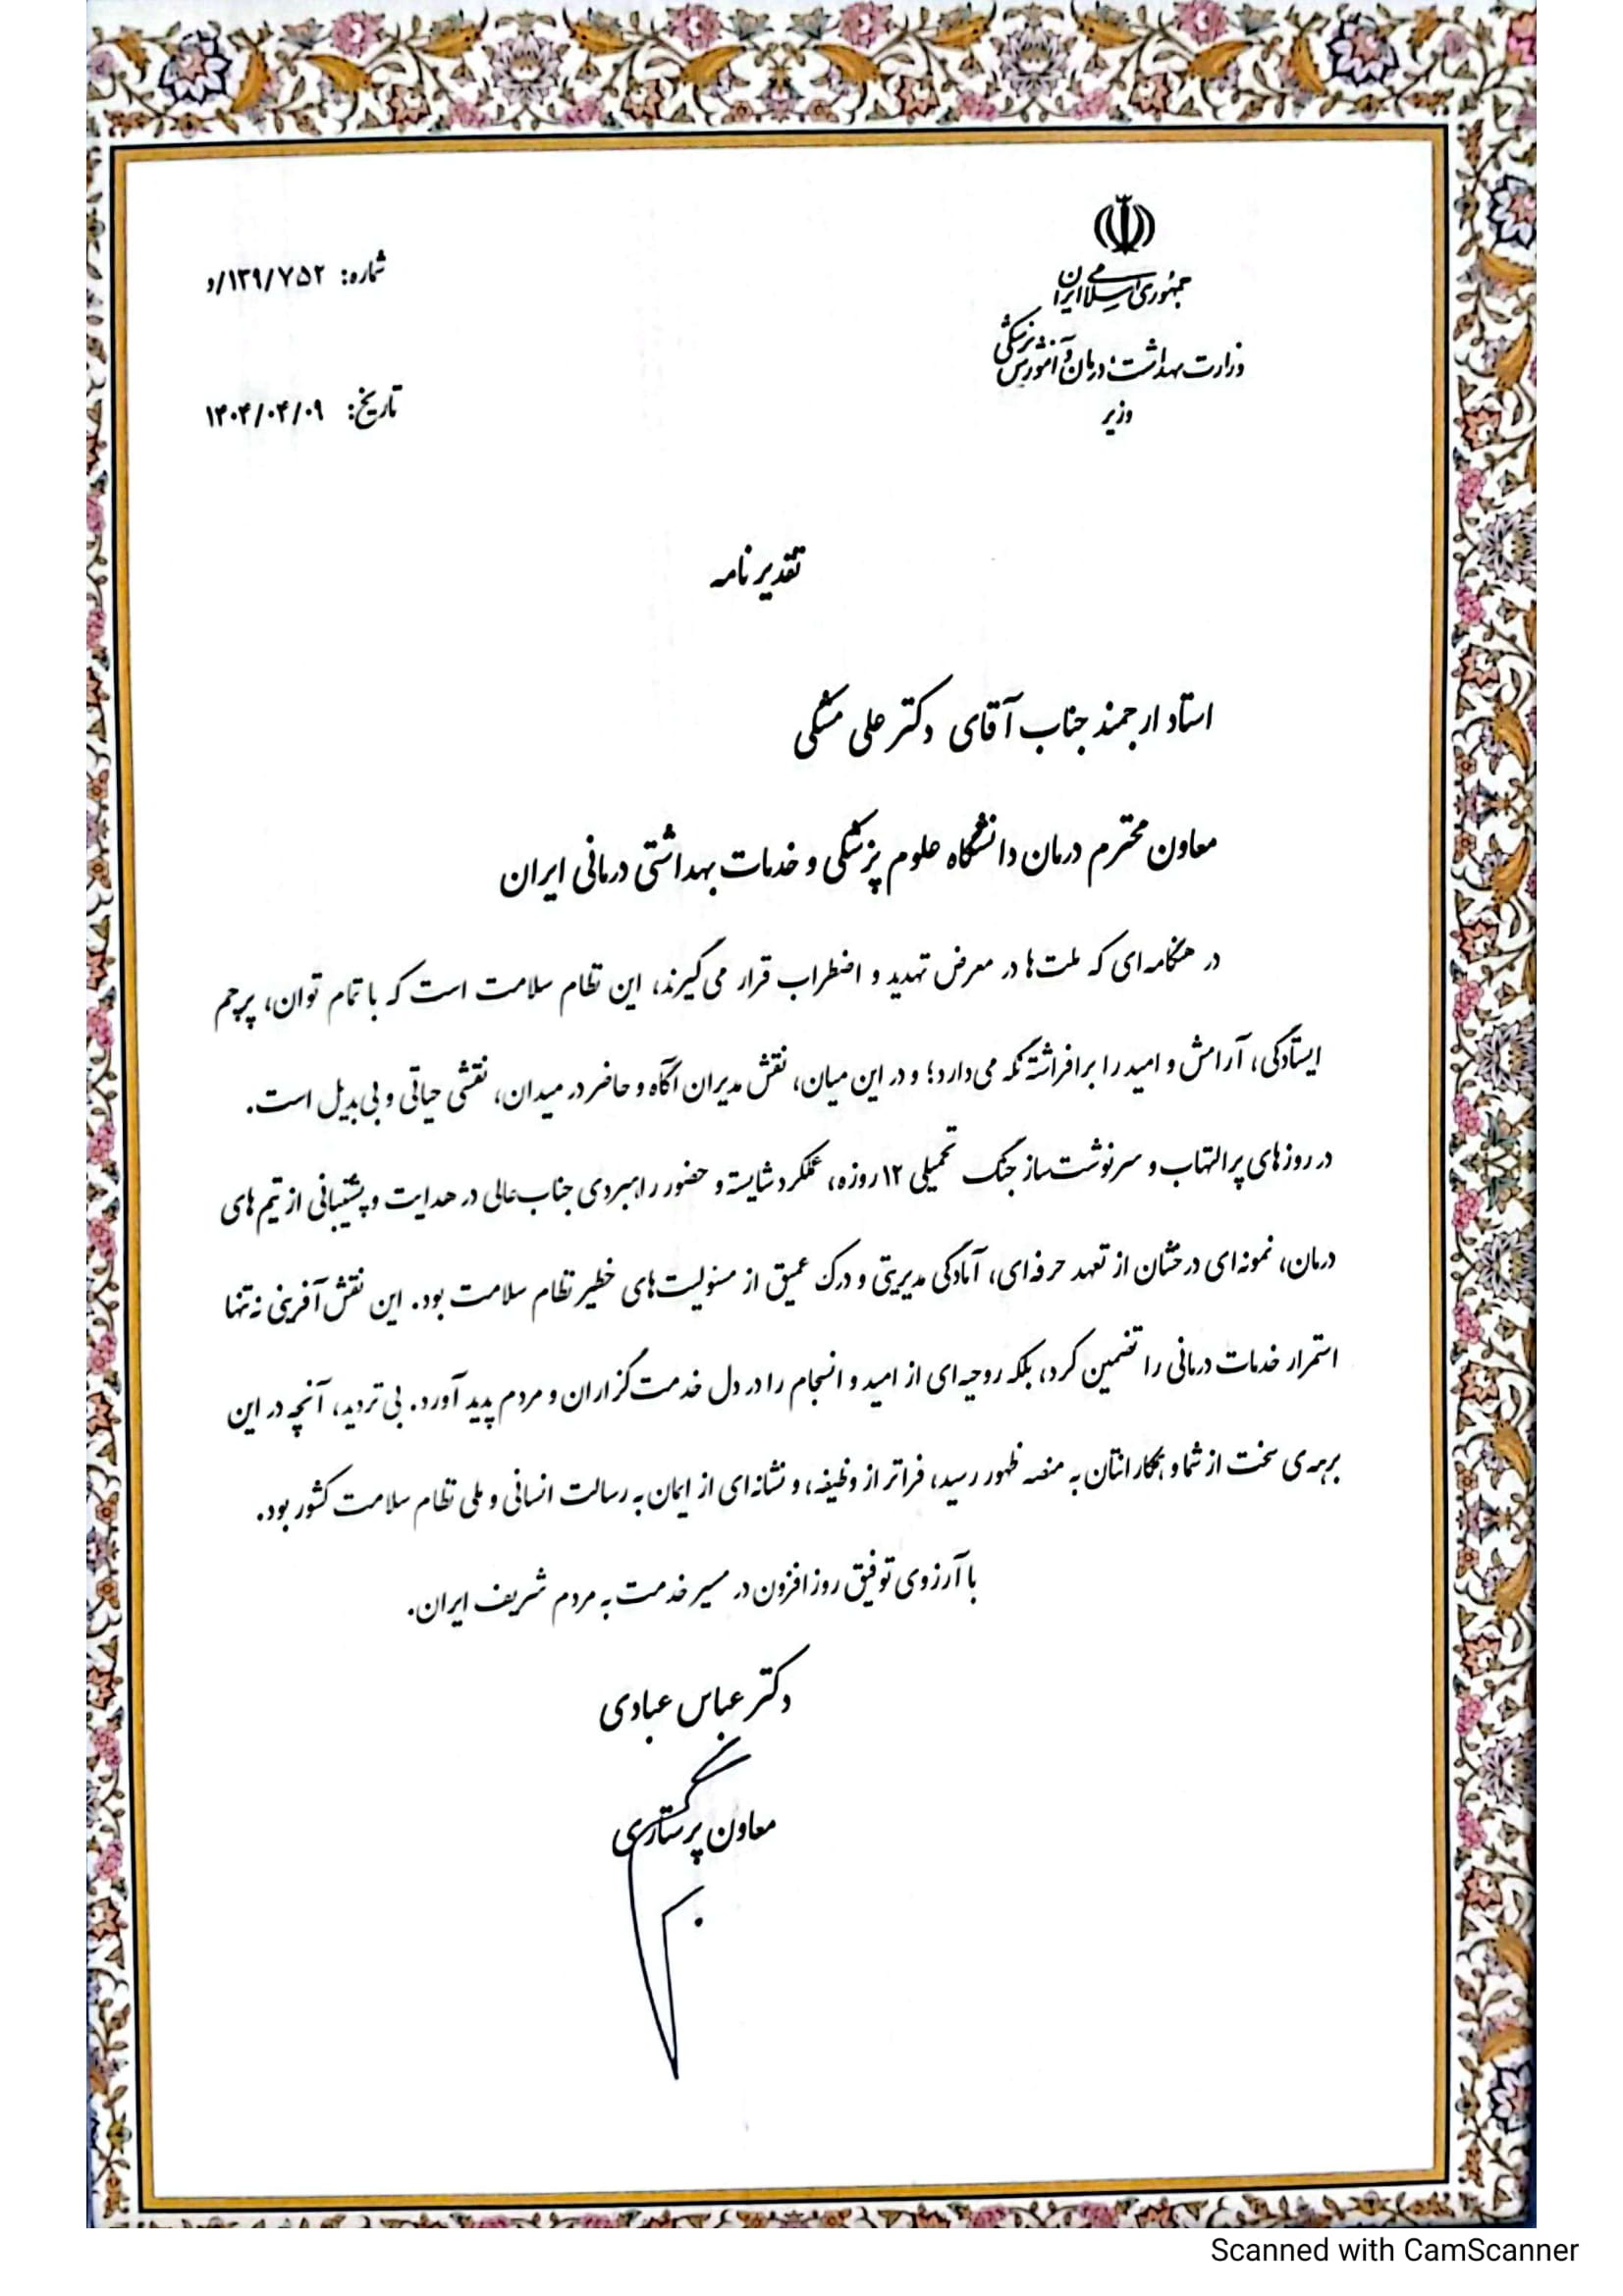 جمهوری اسلامی ایران
وزارت بهداشت، درمان و آموزش پزشکی
وزیر
شماره: ۱۳۹/۷۵۲/و
تاریخ: ۱۴۰۴/۰۴/۰۹
تقدیرنامه
استاد ارجمند جناب آقای دکتر علی مشکی
معاون محترم درمان دانشگاه علوم پزشکی و خدمات بهداشتی درمانی ایران
در هنگامه‌ای که ملت‌ها در معرض تهدید و اضطراب قرار می‌گیرند، این نظام سلامت است که با تمام توان، پرچم
ایستادگی، آرامش و امید را برافراشته نگه می‌دارد؛ و در این میان، نقش مدیران آگاه و حاضر در میدان، نقشی حیاتی و بی‌بدیل است.
در روزهای پرالتهاب و سرنوشت‌ساز جنگ تحمیلی ۱۲ روزه، عملکرد شایسته و حضور راهبردی جناب‌عالی در هدایت و پشتیبانی از تیم‌های
درمان، نمونه‌ای درخشان از تعهد حرفه‌ای، آمادگی مدیریتی و درک عمیق از مسئولیت‌های خطیر نظام سلامت بود. این نقش‌آفرینی نه‌تنها
استمرار خدمات درمانی را تضمین کرد، بلکه روحیه‌ای از امید و انسجام را در دل خدمت‌گزاران و مردم پدید آورد. بی‌تردید، آنچه در این
برهه‌ی سخت از شما و همکارانتان به منصه ظهور رسید، فراتر از وظیفه، و نشانه‌ای از ایمان به رسالت انسانی و ملی نظام سلامت کشور بود.
با آرزوی توفیق روزافزون در مسیر خدمت به مردم شریف ایران.
دکتر عباس عبادی
معاون پرستاری
Scanned with CamScanner